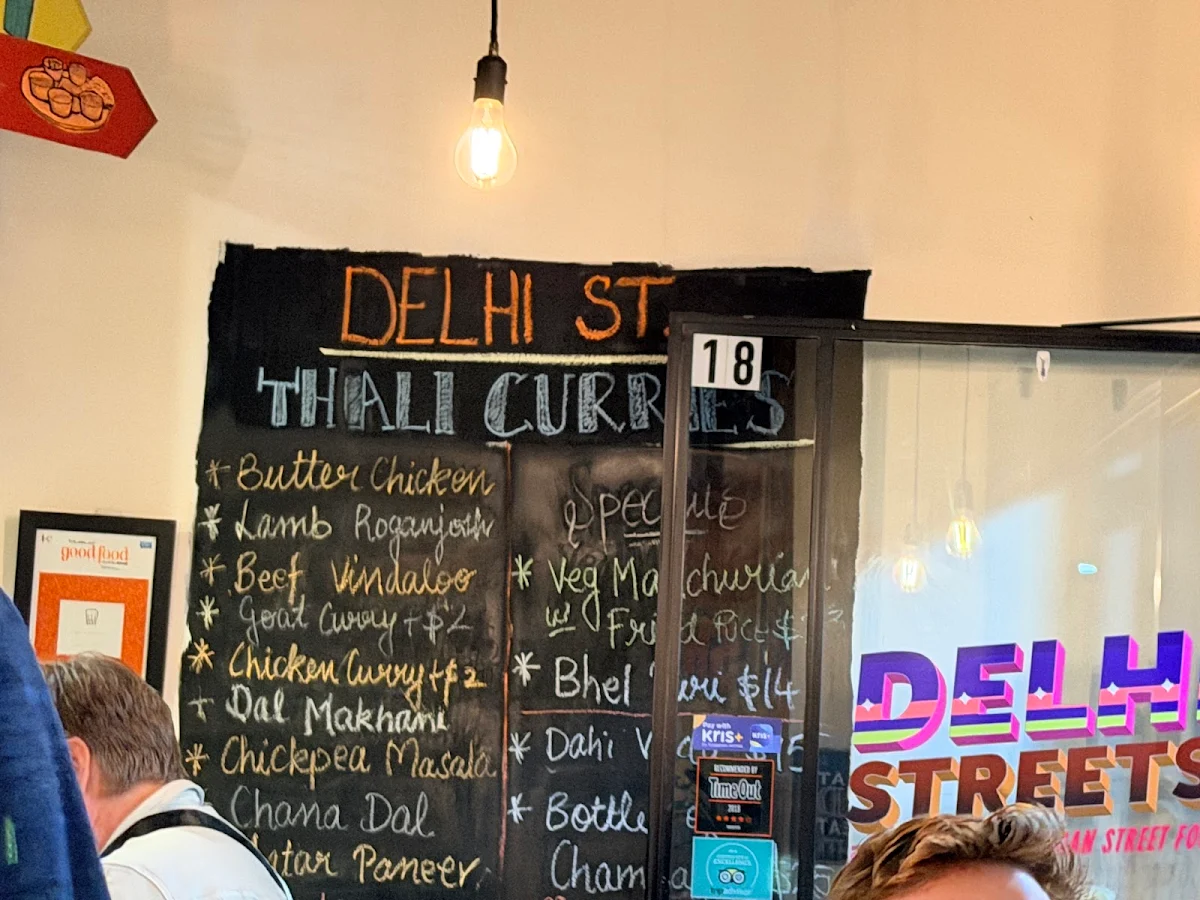 DELHI ST.
THALI CURRIES
* Butter Chicken
* Lamb Roganjosh
* Beef Vindaloo
* Goat Curry + $2
* Chicken Curry + $2
+ Dal Makhani
* Chickpea Masala
Chana Dal
Matar Paneer
Specials
* Veg Manchurian
w/ Fried Rice
* Bhel Puri $14
* Dahi
* Bottle
Cham
18
Pay with
Kris+
RECOMMENDED BY
TimeOut
2019
good food
DELHI
STREETS
AN STREET FO